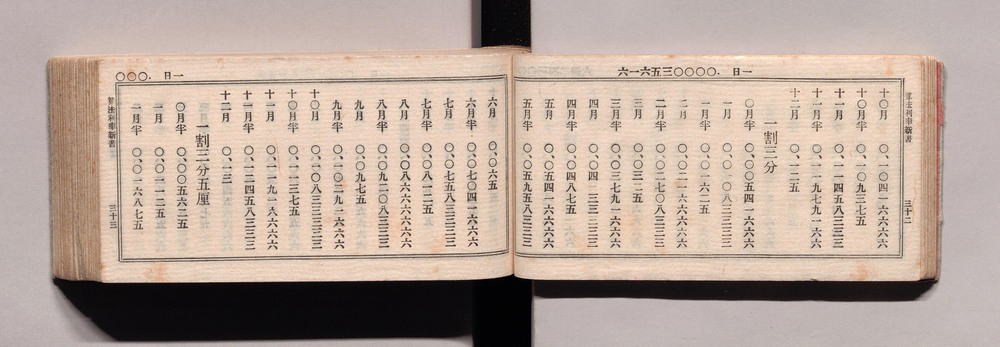 一日 .〇〇〇〇三五六一六
算法利率新書 三十二
十〇月 〇、一〇四一六六六六
十〇月半 〇、一〇九三七五
十一月 〇、一一四五八三三三
十一月半 〇、一一九七九一六六
十二月 〇、一二五
一割三分
〇月半 〇、〇〇五四一六六六
一月 〇、〇一〇八三三三三
一月半 〇、〇一六二五
二月 〇、〇二一六六六六
二月半 〇、〇二七〇八三三三
三月 〇、〇三二五
三月半 〇、〇三七九一六六六
四月 〇、〇四三三三三三
四月半 〇、〇四八七五
五月 〇、〇五四一六六六六
五月半 〇、〇五九五八三三三
一日 .〇〇〇
六月 〇、〇六五
六月半 〇、〇七〇四一六六六
七月 〇、〇七五八三三三三
七月半 〇、〇八一二五
八月 〇、〇八六六六六六六
八月半 〇、〇九二〇八三三三
九月 〇、〇九七五
九月半 〇、一〇二九一六六六
十〇月 〇、一〇八三三三三三
十〇月半 〇、一一三七五
十一月 〇、一一九一六六六六
十一月半 〇、一二四五八三三三
十二月 〇、一三
一割三分五厘
〇月半 〇、〇〇五六二五
一月 〇、〇一一二五
一月半 〇、〇一六八七五
算法利率新書 三十三